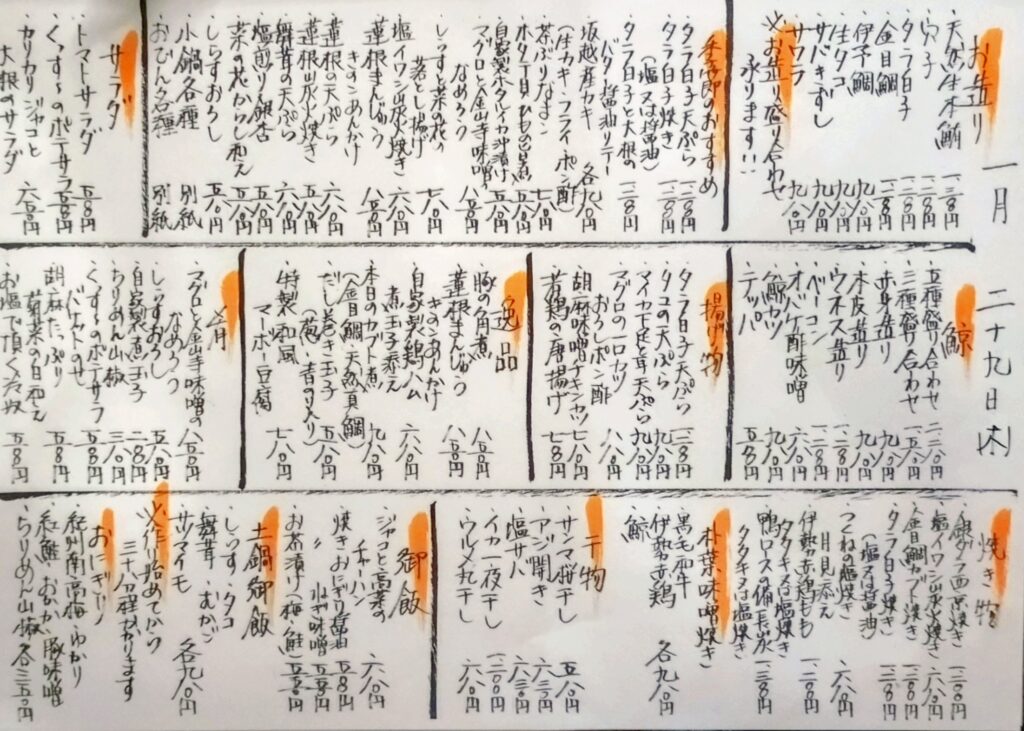 一月 二十九日 木
お造り
天然生本鮪 一、三八〇円
穴子 一、二八〇円
タラ白子 一、二八〇円
金目鯛 一、二八〇円
伊予鯛 九八〇円
生タコ 九八〇円
サバきずし 九八〇円
サワラ 九八〇円
※お造り盛り合わせ
承ります!!
季節のおすすめ
タラ白子天ぷら 一、二八〇円
タラ白子焼き 一、二八〇円
(塩又は醤油)
タラ白子と大根の
バター醤油ソテー 一、三八〇円
坂越産カキ 各九八〇円
(生カキ・フライ・ポン酢)
茶ぶりなまこ 七八〇円
ホタテ貝ひも旨煮 五八〇円
自家製ホタルイカ沖漬け 五八〇円
マグロと金山寺味噌の
なめろう 八八〇円
しらすと菜の花の
落とし揚げ 七八〇円
塩イワシ炭火焼き 六八〇円
蓮根まんじゅう
きのこあんかけ 八五〇円
蓮根の天ぷら 六八〇円
蓮根炭火焼き 六八〇円
舞茸の天ぷら 五八〇円
塩煎り銀杏 五五〇円
菜の花からし和え 五八〇円
しらすおろし 五八〇円
小鍋各種 別紙
おでん各種 別紙
サラダ
トマトサラダ 五八〇円
くんすーのポテサラ 五五〇円
カリカリジャコと
大根のサラダ 六八〇円
鯨
五種盛り合わせ 二、二八〇円
三種盛り合わせ 一、五八〇円
赤身造り 九八〇円
本皮造り 九八〇円
ウネス造り 一、二八〇円
ベーコン 一、二八〇円
オバケ酢味噌 六八〇円
鯨カツ 九八〇円
テッパ 五八〇円
揚げ物
タラ白子天ぷら 一、二八〇円
タコの天ぷら 九八〇円
マイカ下足と茸天ぷら 九八〇円
マグロの一口カツ
おろしポン酢 八八〇円
胡麻味噌チキンカツ 七八〇円
若鶏の唐揚げ 七八〇円
逸品
豚の角煮 八八〇円
蓮根まんじゅう
きのこあんかけ 八五〇円
自家製鶏ハム
煮玉子添え 六八〇円
本日のカブト煮 九八〇円
(金目鯛・天然真鯛)
だし巻き玉子 六八〇円
(葱・青のり入り)
特製和風
マーボー豆腐 七八〇円
肴
マグロと金山寺味噌の
なめろう 八八〇円
しらすおろし 五八〇円
自家製煮玉子 二八〇円
ちりめん山椒 三八〇円
くんすーのポテサラ
バケットのせ 五八〇円
胡麻たっぷり
菊菜の白和え 五八〇円
お塩で頂く冷奴 五八〇円
焼き物
銀ダラ西京焼き 一、二八〇円
塩イワシ炭火焼き 六八〇円
金目鯛カブト焼き 一、二八〇円
タラ白子焼き 一、二八〇円
(塩又は醤油)
つくね塩焼き
月見添え 六八〇円
伊勢赤鶏もも
タタキ又は塩焼き 一、二八〇円
鴨ロースの備長炭
タタキ又は塩焼き 一、三八〇円
朴葉味噌焼き
黒毛和牛
伊勢赤鶏
鯨 各九八〇円
干物
サンマ桜干し 五八〇円
アジ開き 六三〇円
塩サバ 六三〇円
イカ一夜干し 一、二〇〇円
ウルメ丸干し 六八〇円
御飯
ジャコと高菜の
チャーハン 六八〇円
焼きおにぎり醤油 五八〇円
〃 ねぎ味噌 五八〇円
お茶漬け(梅・鮭) 五五〇円
土鍋御飯
しらす タコ
舞茸 むかご
サツマイモ 各九八〇円
※作り始めてから
三十八分程かかります
おにぎり
紀州南高梅・ゆかり
紅鮭・おかか・豚味噌
ちりめん山椒 各三五〇円